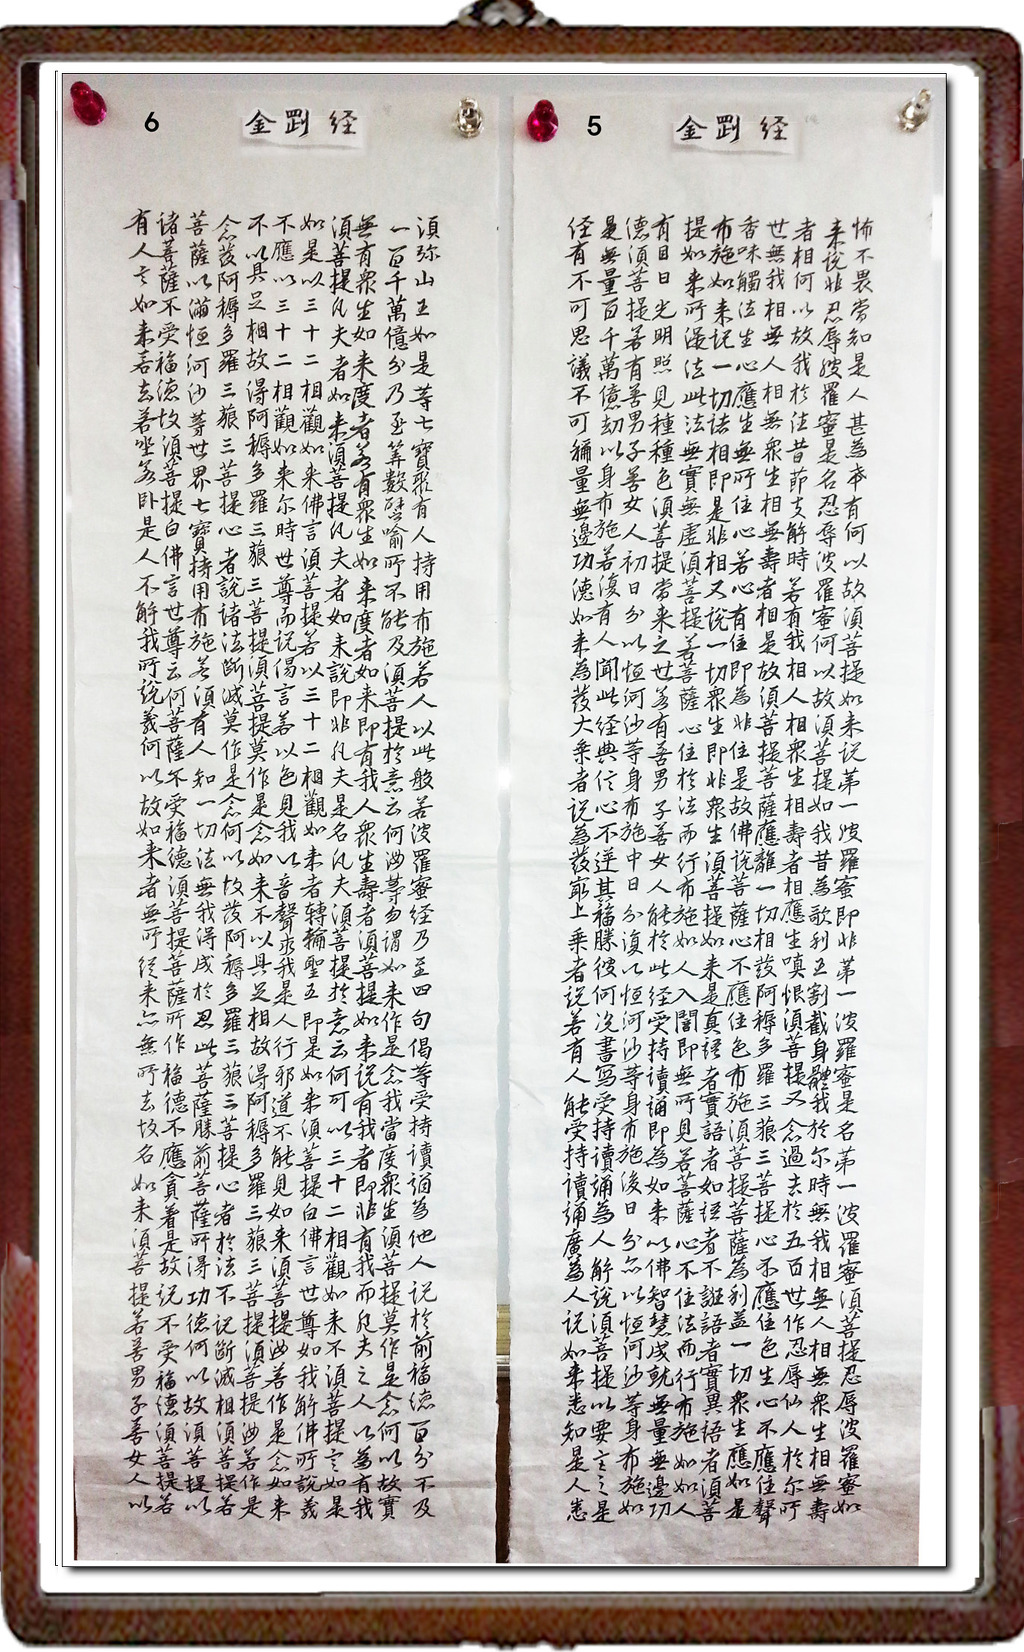 5
金剛经
怖不畏当知是人甚為本有何以故須菩提如来说第一波羅蜜即非第一波羅蜜是名第一波羅蜜須菩提忍辱波羅蜜如
来说非忍辱波羅蜜是名忍辱波羅蜜何以故須菩提如我昔為歌利王割截身體我於尔時無我相無人相無衆生相無壽
者相何以故我於法昔節支解時若有我相人相衆生相壽者相應生嗔恨須菩提又念過去於五百世作忍辱仙人於尔所
世無我相無人相無衆生相無壽者相是故須菩提菩薩應離一切相發阿耨多羅三藐三菩提心不應住色生心不應住聲
香味觸法生心應生無所住心若心有住即為非住是故佛说菩薩心不應住色布施須菩提菩薩為利益一切衆生應如是
布施如来说一切诸相即是非相又说一切衆生即非衆生須菩提如来是真语者實語者如语者不誑語者實異語者須菩
提如来所得法此法無實無虚須菩提若菩薩心住於法而行布施如人入闇即無所見若菩薩心不住法而行布施如如人
有目日光明照見種種色須菩提当来之世若有善男子善女人能於此经受持读诵即為如来以佛智慧成就無量無邊功
德須菩提若有善男子善女人初日分以恒河沙等身布施中日分復以恒河沙等身布施後日分亦以恒河沙等身布施如
是無量百千萬億劫以身布施若復有人聞此经典信心不逆其福勝彼何况書写受持读诵為人解說須菩提以要言之是
经有不可思議不可稱量無邊功德如来為發大乘者说為發最上乘者说若有人能受持讀誦廣為人说如来悉知是人悉
6
金剛经
須弥山王如是等七寶聚有人持用布施若人以此般若波羅蜜经乃至四句偈等受持读诵為他人说於前福德百分不及
一百千萬億分乃至筭數譬喻所不能及須菩提於意云何汝等勿谓如来作是念我當度衆生須菩提莫作是念何以故實
無有衆生如来度者若有衆生如来度者如来即有我人衆生壽者須菩提如来说有我者即非有我而凡夫之人以為有我
須菩提凡夫者如来須菩提凡夫者如来說即非凡夫是名凡夫須菩提於意云何可以三十二相觀如来不須菩提言如是
如是以三十二相觀如来佛言須菩提若以三十二相觀如来者转輪聖王即是如来須菩提白佛言世尊如我解佛所說義
不應以三十二相觀如来尔時世尊而说偈言若以色見我以音聲求我是人行邪道不能見如来須菩提汝若作是念如来
不以具足相故得阿耨多羅三藐三菩提須菩提莫作是念如来不以具足相故得阿耨多羅三藐三菩提須菩提汝若作是
念發阿耨多羅三藐三菩提心者說诸法断滅莫作是念何以故發阿耨多羅三藐三菩提心者於法不说断滅相須菩提若
菩薩以滿恒河沙等世界七寶持用布施若須有人知一切法無我得成於忍此菩薩勝前菩薩所得功德何以故須菩提以
诸菩薩不受福德故須菩提白佛言世尊云何菩薩不受福德須菩提菩薩所作福德不應貪着是故说不受福德須菩提若
有人言如来若去若坐若卧是人不解我所说義何以故如来者無所從来亦無所去故名如来須菩提若善男子善女人以